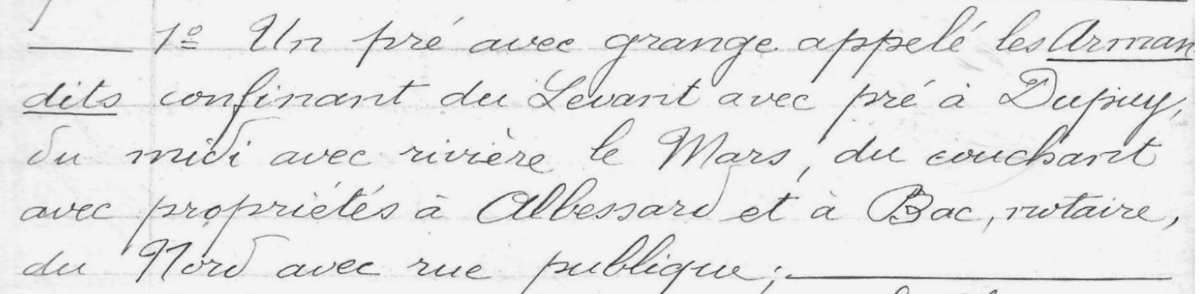 1º Un pré avec grange appelé les Arman
dits confinant du Levant avec pré à Dupuy,
du midi avec rivière le Mars, du couchant
avec propriétés à Albessard et à Bac, notaire,
du Nord avec rue publique;